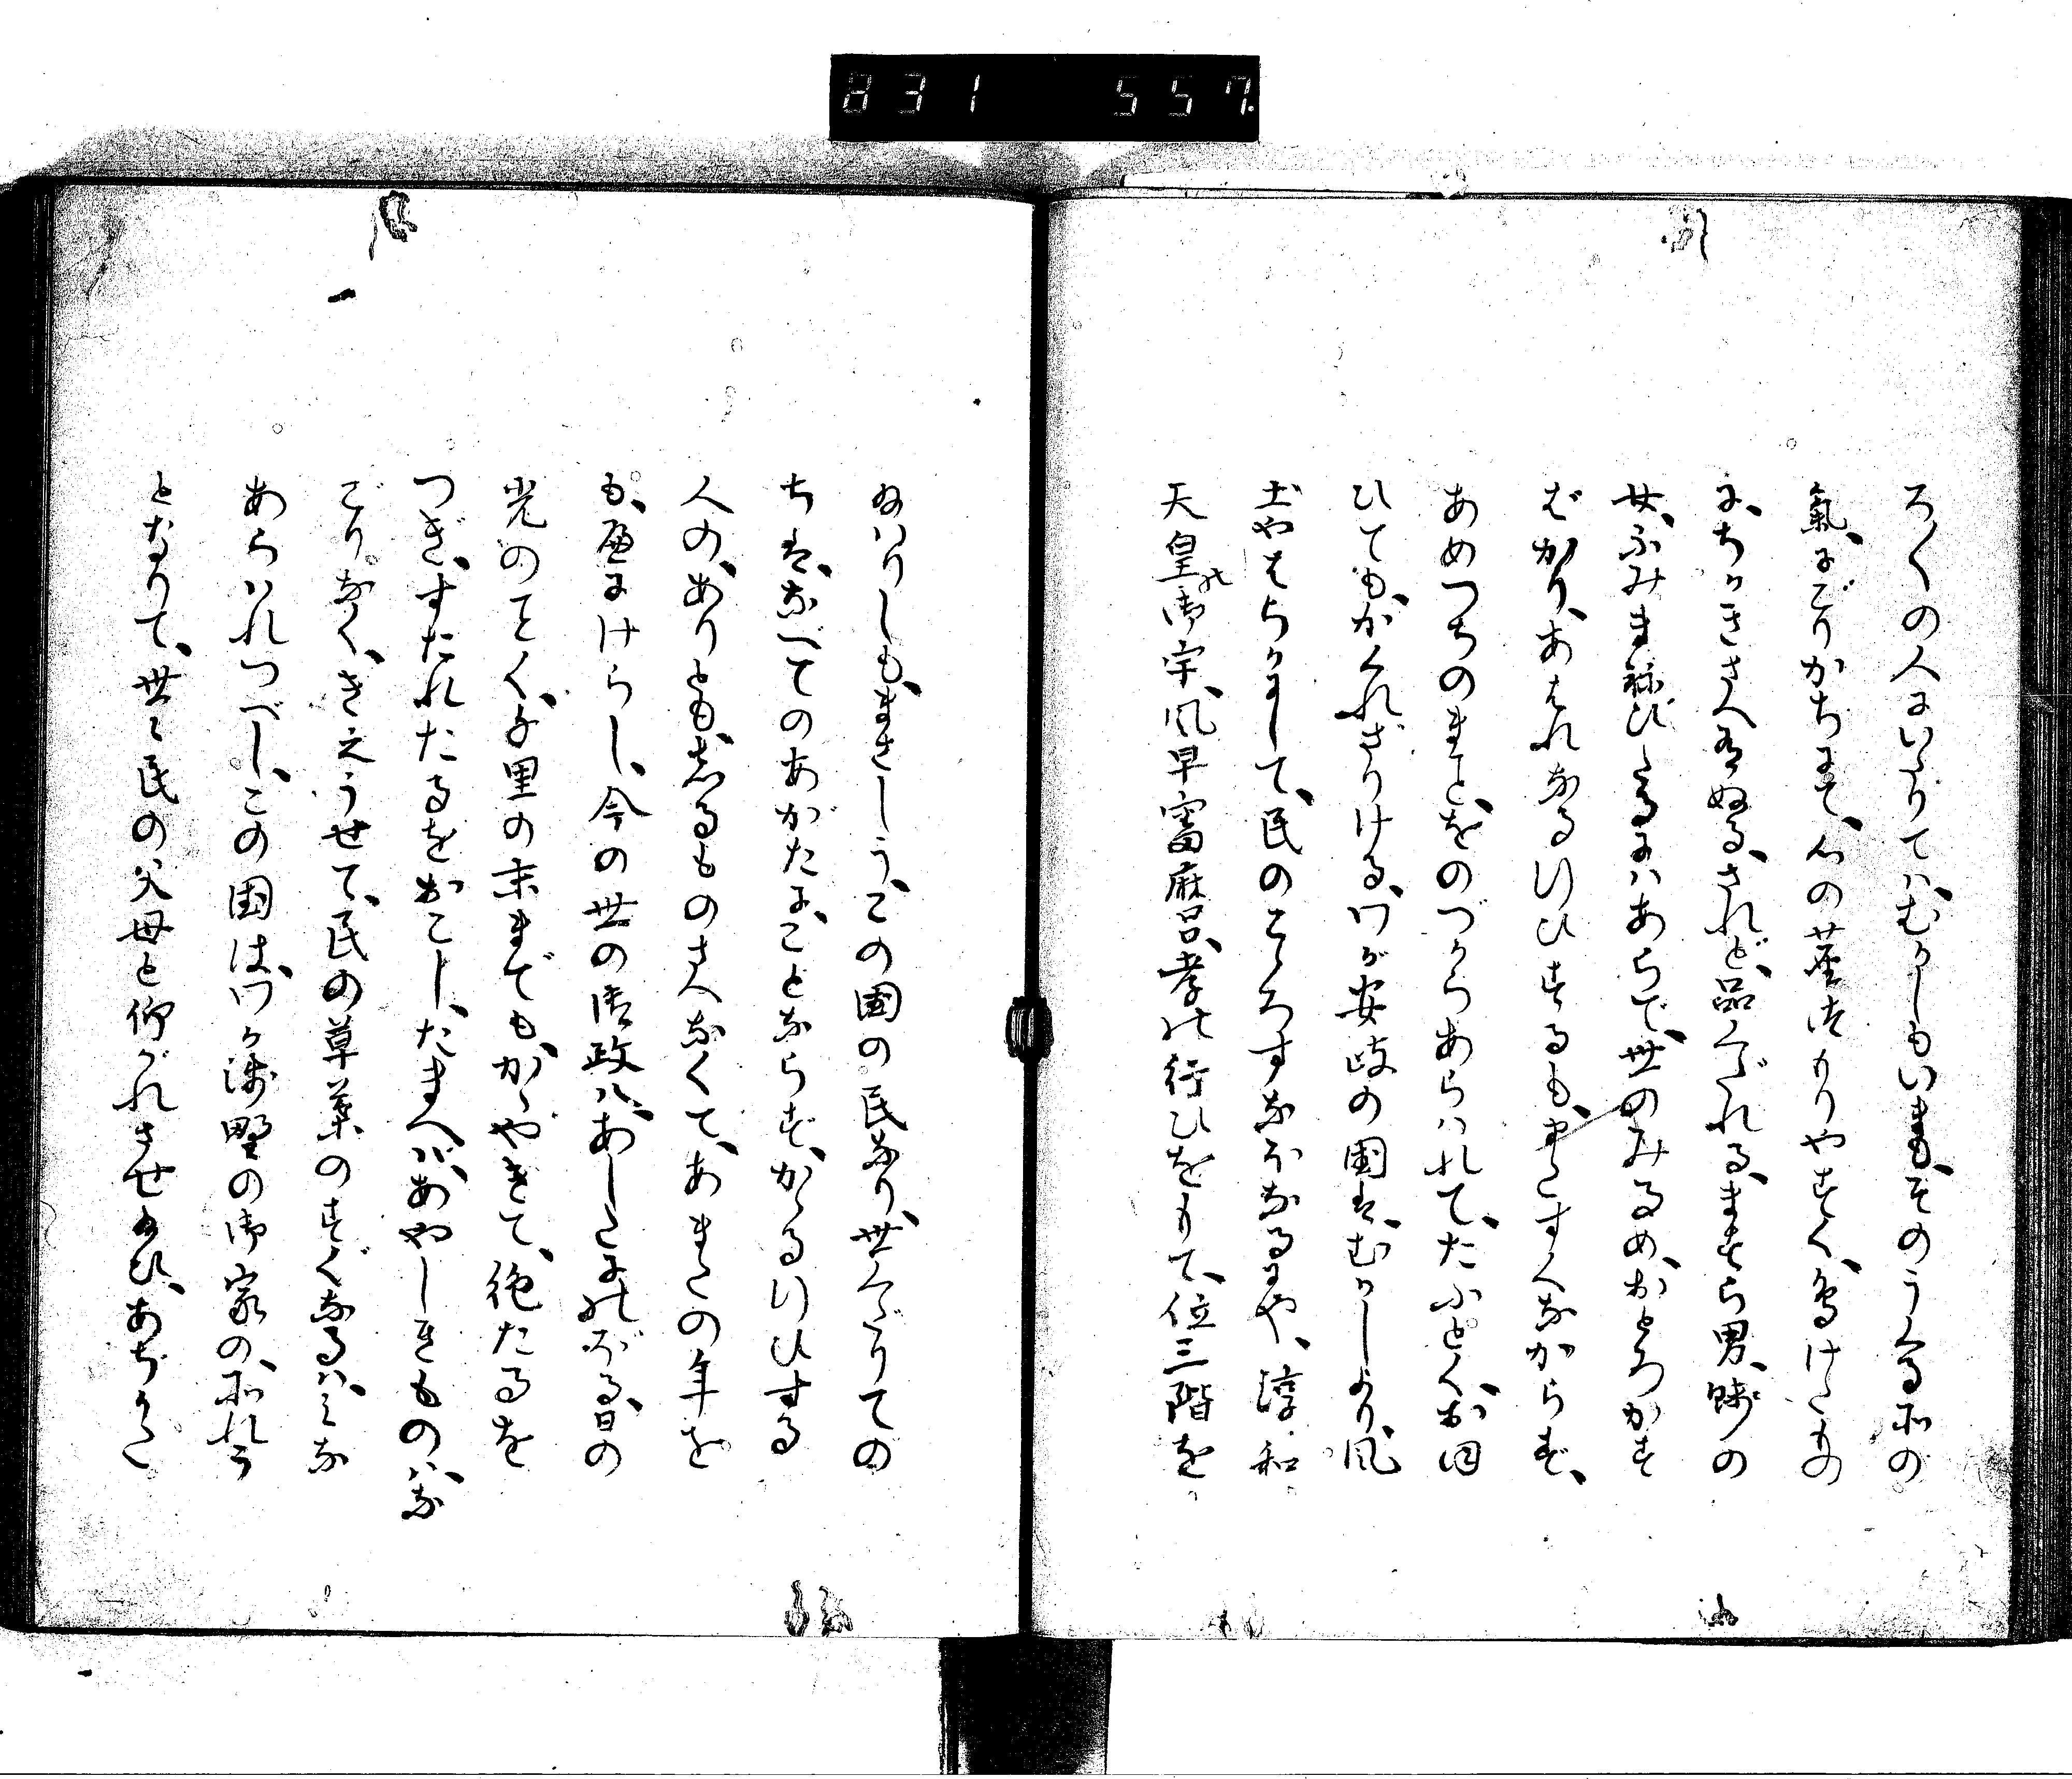 831 557
ろくの人にいたりては、むかしもいまも、そのうくる所の
氣、にごりかちにて、心の塵つもりやすく、鳥けたもの
に、ちかきさへ有ぬる、されど、品くだれる、ますら男、賤の
女、ふみまなびたるにはあらで、世のみるめ、おとろかす
ばかり、あはれなる行ひするも、またすくなからず、
あめつちのまこと、をのづからあらはれて、たふとくおほ
ひても、かくれざりける、わが安岐の国は、むかしより、風
土やはらかにして、民のこゝろすなほなるにや、淳和
天皇の御宇、風早富麻呂、孝の行ひをもて、位三階を
給はりしも、まさしう、この國の民なり、世くだりての
ちは、なべてのあがたに、ことならず、かゝる行ひする
人の、ありとも、しるものさへなくて、あまたの年を
も、歴にけらし、今の世の御政は、あしたにのぼる、日の
光のことく、千里の末までも、かゝやきて、絶たるを
つぎ、すたれたるをおこし、たまへば、あやしきものは、な
ごりなく、きえうせて、民の草葉のすぐなるは、みな
あらはれつべし、この国は、わが淺野の御家の、所れう
となりて、世々民の父母と仰がれさせ給ひ、あぢかた